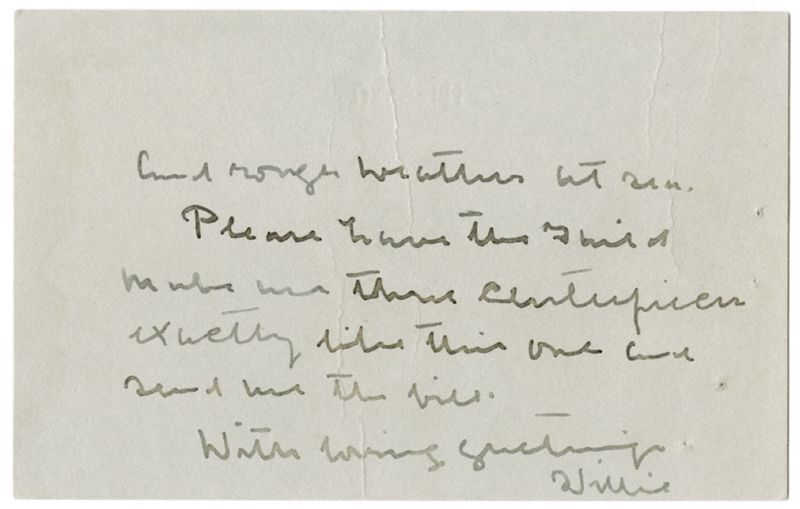 and rough weather at sea.
Please have the Guild
make me three centerpieces
exactly like this one and
send me the bill.
With loving greetings
Willie